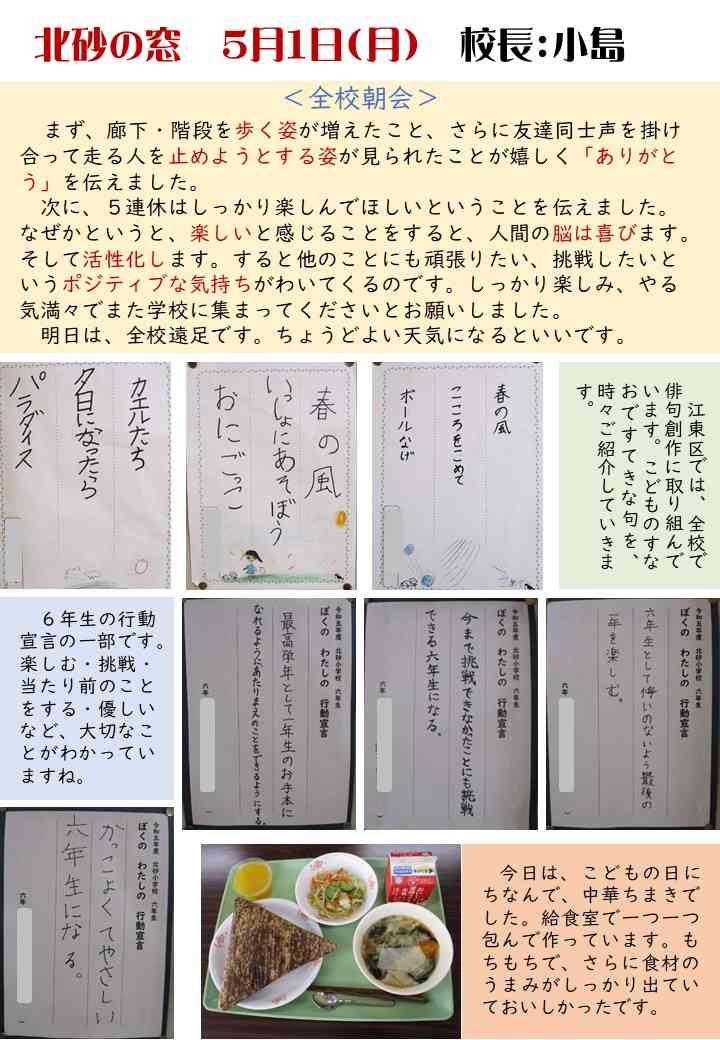 北砂の窓　5月1日(月)　校長:小島
＜全校朝会＞
まず、廊下・階段を歩く姿が増えたこと、さらに友達同士声を掛け
合って走る人を止めようとする姿が見られたことが嬉しく「ありがと
う」を伝えました。
次に、５連休はしっかり楽しんでほしいということを伝えました。
なぜかというと、楽しいと感じることをすると、人間の脳は喜びます。
そして活性化します。すると他のことにも頑張りたい、挑戦したいと
いうポジティブな気持ちがわいてくるのです。しっかり楽しみ、やる
気満々でまた学校に集まってくださいとお願いしました。
明日は、全校遠足です。ちょうどよい天気になるといいです。
カエルたち
夕日になったら
パラダイス
春の風
いっしょにあそぼう
おにごっこ
春の風
こころをこめて
ボールなげ
江東区では、全校で
俳句創作に取り組んで
います。こどものすな
おですてきな句を、
時々ご紹介していきま
す。
６年生の行動
宣言の一部です。
楽しむ・挑戦・
当たり前のこと
をする・優しい
など、大切なこ
とがわかってい
ますね。
令和五年度　北砂小学校　六年生
ぼくの　わたしの　行動宣言
最高学年として一年生のお手本に
なれるようにあたりまえのことをできるようにする。
六年
令和五年度　北砂小学校　六年生
ぼくの　わたしの　行動宣言
今まで挑戦できなかたことにも挑戦
できる六年生になる。
六年
令和五年度　北砂小学校　六年生
ぼくの　わたしの　行動宣言
六年生として悔いのないよう最後の
一年を楽しむ。
六年
令和五年度　北砂小学校　六年生
ぼくの　わたしの　行動宣言
かっこよくてやさしい
六年生になる。
六年
今日は、こどもの日に
ちなんで、中華ちまきで
した。給食室で一つ一つ
包んで作っています。も
ちもちで、さらに食材の
うまみがしっかり出てい
ておいしかったです。